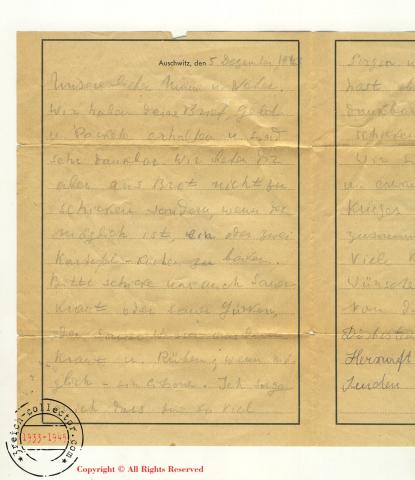 Auschwitz, den 5 Dezember 194
Unsere liebe Mama u.
Wir haben deine Brief Geld
u. Pakete erhalten u. sind
sehr dankbar. Wir bitten Dir
aber uns Brot nicht zu
schicken sondern, wenn das
möglich ist, ein oder zwei
Kartoffel-Kuchen zu backen.
Bitte schicke uns auch Sauer
kraut oder saure Gurken,
oder
kraut u. Rüben; wenn mö
glich - ein Citrone. Ich sorge
mich dass Sie so viel
Sorgen u
hast
dankbar
schicken
Wir
u.
Krieger
zusamm
Viel K
Wünsche
von d
Herkunft
senden
3reich-collector.com
1933-1945
Copyright © All Rights Reserved